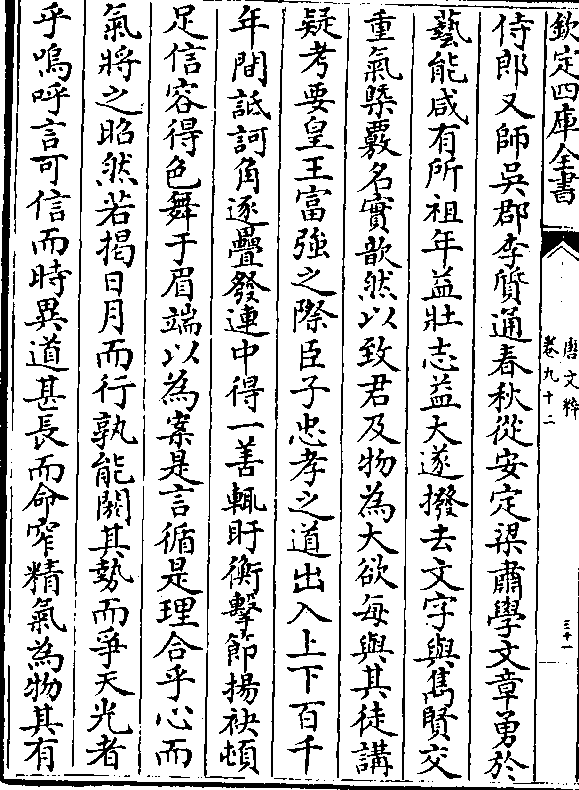 欽定四庫全書
唐文粹
卷九十二
三十一
侍郎又師吳郡李質通春秋從安定梁肅學文章勇於
藝能咸有所祖年益壯志益大遂撥去文字與雋賢交
重氣槩覈名實歆然以致君及物為大欲每與其徒講
疑考要皇王富強之際臣子忠孝之道出入上下百千
年間詆訶角逐疊發連中得一善輒盱衡擊節揚袂頓
足信容得色舞于眉端以為案是言循是理合乎心而
氣將之昭然若揭日月而行孰能閼其勢而爭天光者
乎嗚呼言可信而時異道甚長而命窄精氣為物其有